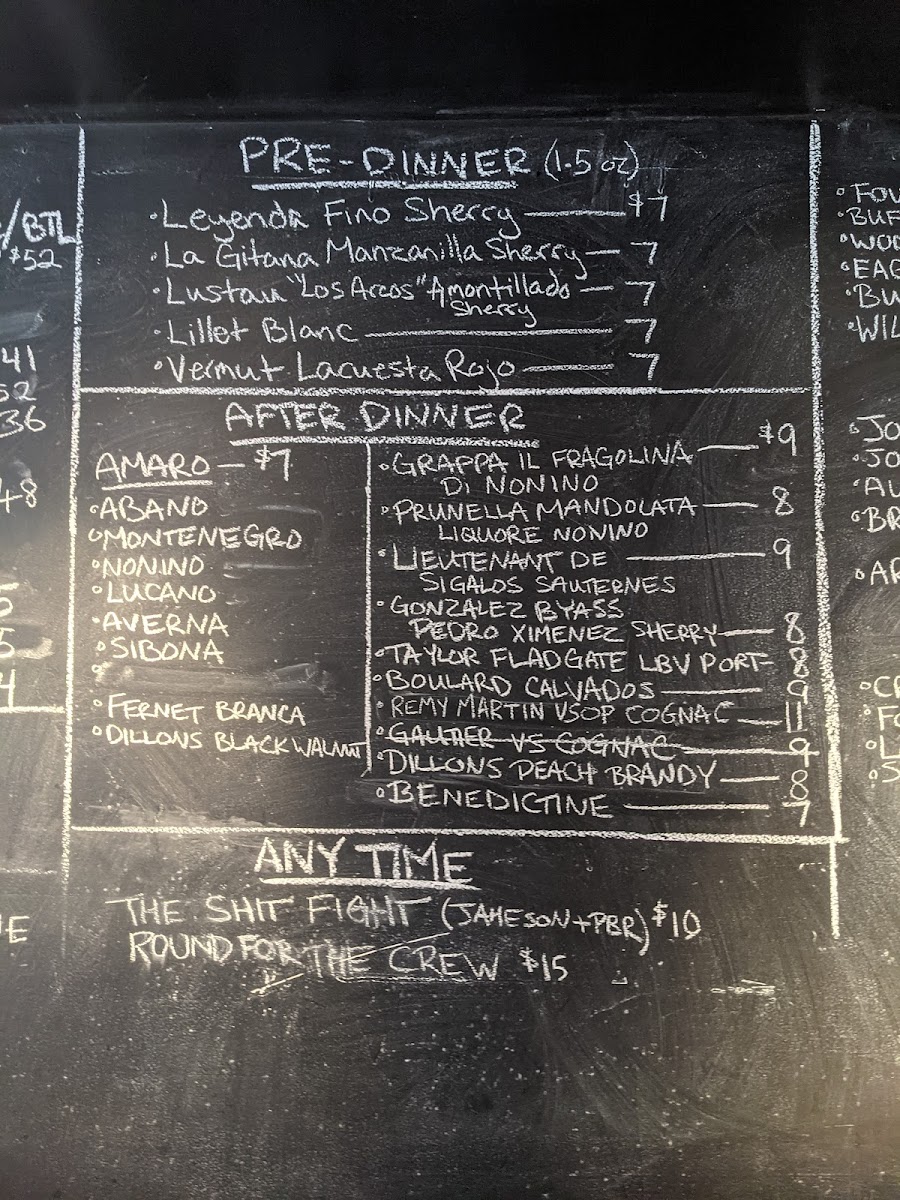 /BTL
$52
41
52
36
48
5
5
4
E
PRE-DINNER (1.5 oz)
• Leyenda Fino Sherry — $7
• La Gitana Manzanilla Sherry — 7
• Lustau "Los Arcos" Amontillado — 7
Sherry
• Lillet Blanc — 7
• Vermut Lacuesta Rojo — 7
AFTER DINNER
AMARO — $7
• ABANO
• MONTENEGRO
• NONINO
• LUCANO
• AVERNA
• SIBONA
• FERNET BRANCA
• DILLONS BLACK WALNUT
• GRAPPA IL FRAGOLINA — $9
DI NONINO
• PRUNELLA MANDOLATA — 8
LIQUORE NONINO
• LIEUTENANT DE — 9
SIGALOS SAUTERNES
• GONZALEZ BYASS
PEDRO XIMENEZ SHERRY — 8
• TAYLOR FLADGATE LBV PORT — 8
• BOULARD CALVADOS — 9
• REMY MARTIN VSOP COGNAC — 11
• GAUTIER VS COGNAC — 9
• DILLONS PEACH BRANDY — 8
• BENEDICTINE — 7
ANY TIME
THE SHIT FIGHT (JAMESON+PBR) $10
ROUND FOR THE CREW $15
• FOU
• BUF
• WOO
• EAG
• BU
• WIL
• JO
• JO
• AU
• BR
• AR
• CR
• FO
• L
• S